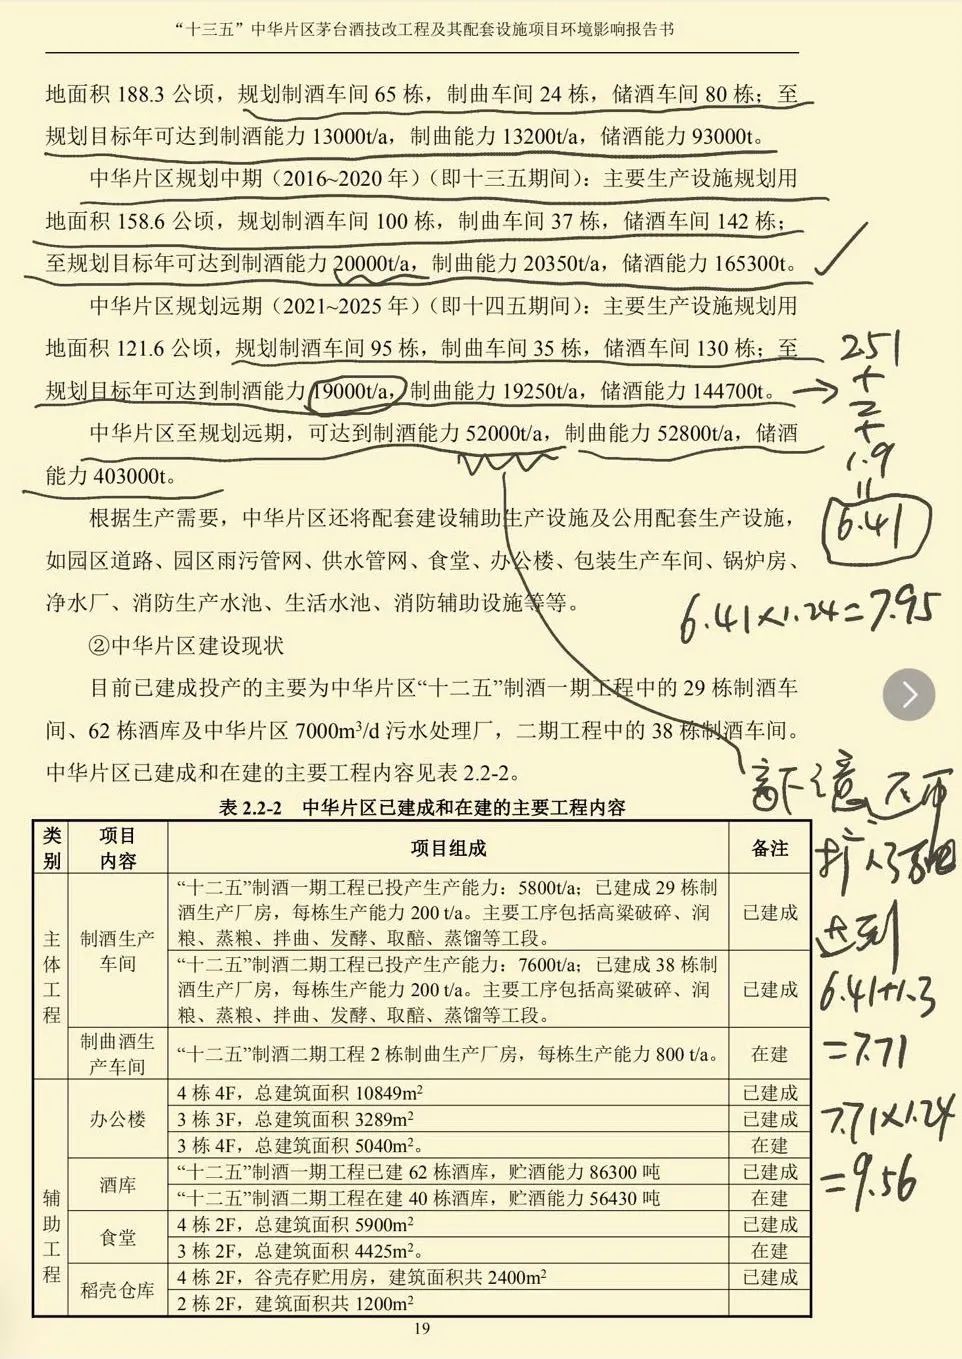 “十三五”中华片区茅台酒技改工程及其配套设施项目环境影响报告书
地面积 188.3 公顷，规划制酒车间 65 栋，制曲车间 24 栋，储酒车间 80 栋；至
规划目标年可达到制酒能力 13000t/a，制曲能力 13200t/a，储酒能力 93000t。
中华片区规划中期（2016~2020 年）（即十三五期间）：主要生产设施规划用
地面积 158.6 公顷，规划制酒车间 100 栋，制曲车间 37 栋，储酒车间 142 栋；
至规划目标年可达到制酒能力 20000t/a，制曲能力 20350t/a，储酒能力 165300t。
中华片区规划远期（2021~2025 年）（即十四五期间）：主要生产设施规划用
地面积 121.6 公顷，规划制酒车间 95 栋，制曲车间 35 栋，储酒车间 130 栋；至
规划目标年可达到制酒能力 19000t/a，制曲能力 19250t/a，储酒能力 144700t。
中华片区至规划远期，可达到制酒能力 52000t/a，制曲能力 52800t/a，储酒
能力 403000t。
根据生产需要，中华片区还将配套建设辅助生产设施及公用配套生产设施，
如园区道路、园区雨污管网、供水管网、食堂、办公楼、包装生产车间、锅炉房、
净水厂、消防生产水池、生活水池、消防辅助设施等等。
②中华片区建设现状
目前已建成投产的主要为中华片区“十二五”制酒一期工程中的 29 栋制酒车
间、62 栋酒库及中华片区 7000m³/d 污水处理厂，二期工程中的 38 栋制酒车间。
中华片区已建成和在建的主要工程内容见表 2.2-2。
表 2.2-2 中华片区已建成和在建的主要工程内容
类别 项目内容 项目组成 备注
主体工程
制酒生产车间
“十二五”制酒一期工程已投产生产能力：5800t/a；已建成 29 栋制
酒生产厂房，每栋生产能力 200 t/a。主要工序包括高粱破碎、润
粮、蒸粮、拌曲、发酵、取醅、蒸馏等工段。
已建成
“十二五”制酒二期工程已投产生产能力：7600t/a；已建成 38 栋制
酒生产厂房，每栋生产能力 200 t/a。主要工序包括高粱破碎、润
粮、蒸粮、拌曲、发酵、取醅、蒸馏等工段。
已建成
制曲酒生产车间
“十二五”制酒二期工程 2 栋制曲生产厂房，每栋生产能力 800 t/a。 在建
辅助工程
办公楼
4 栋 4F，总建筑面积 10849m² 已建成
3 栋 3F，总建筑面积 3289m²。 已建成
3 栋 4F，总建筑面积 5040m²。 在建
酒库
“十二五”制酒一期工程已建 62 栋酒库，贮酒能力 86300 吨 已建成
“十二五”制酒二期工程在建 40 栋酒库，贮酒能力 56430 吨 在建
食堂
4 栋 2F，总建筑面积 5900m² 已建成
3 栋 2F，总建筑面积 4425m²。 在建
稻壳仓库
4 栋 2F，谷壳存贮用房，建筑面积共 2400m² 已建成
2 栋 2F，建筑面积共 1200m²
19
251
+
2
+
1.9
=
6.41
6.41×1.24=7.95
达到
6.41+1.3
=7.71
7.71×1.24
=9.56